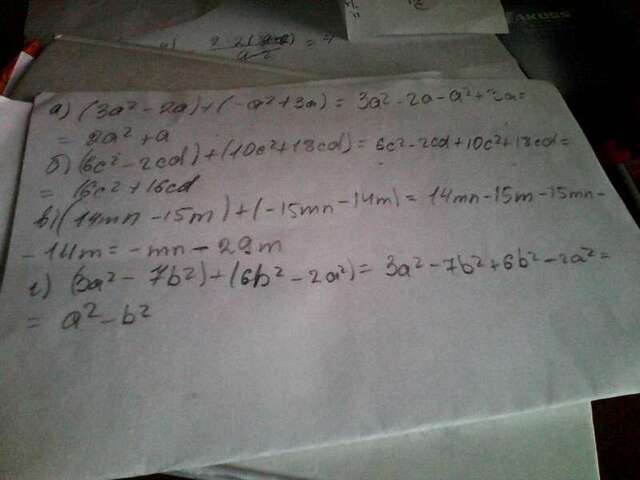 а) (3a² - 2a) + (-a² + 3a) = 3a² - 2a - a² + 3a =
= 2a² + a
б) (6c² - 2cd) + (10c² + 18cd) = 6c² - 2cd + 10c² + 18cd =
= 16c² + 16cd
в) (14mn - 15m) + (-15mn - 14m) = 14mn - 15m - 15mn -
- 14m = -mn - 29m
г) (3a² - 7b²) + (6b² - 2a²) = 3a² - 7b² + 6b² - 2a² =
= a² - b²